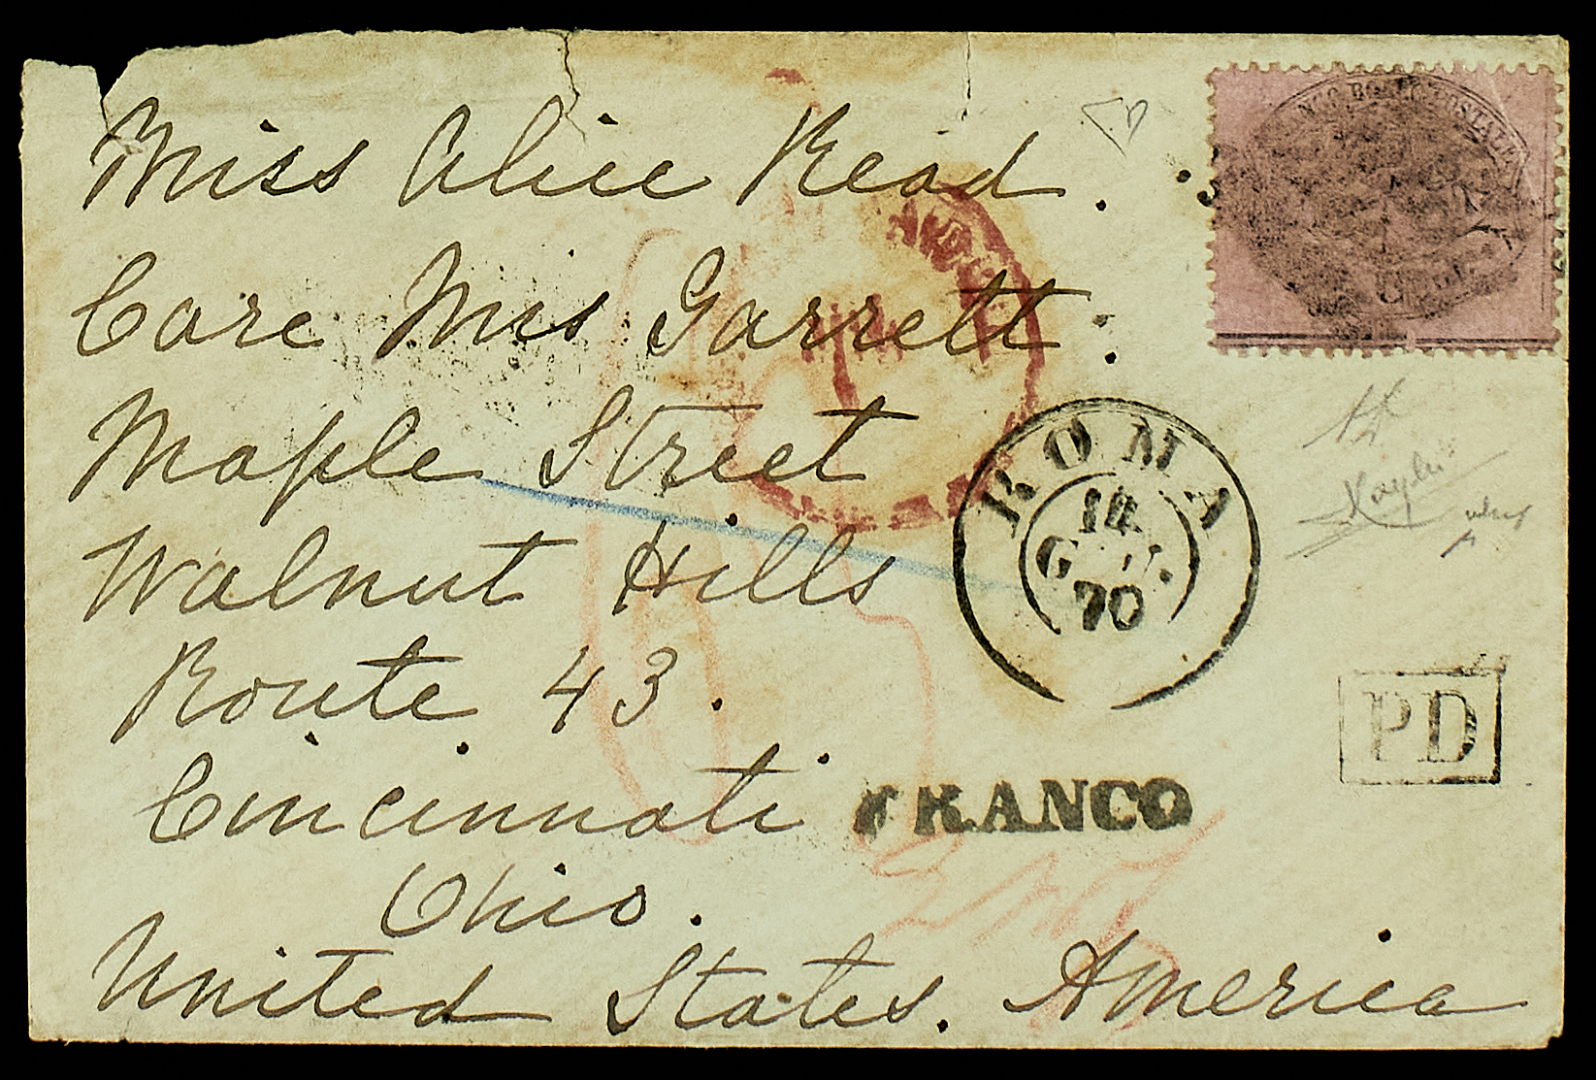 Miss Alice Read.
Care Mrs Garrett.
Maple Street
Walnut Hills
Route 43.
Cincinnati
Ohio.
United States. America
ROMA
70
FRANCO
PD